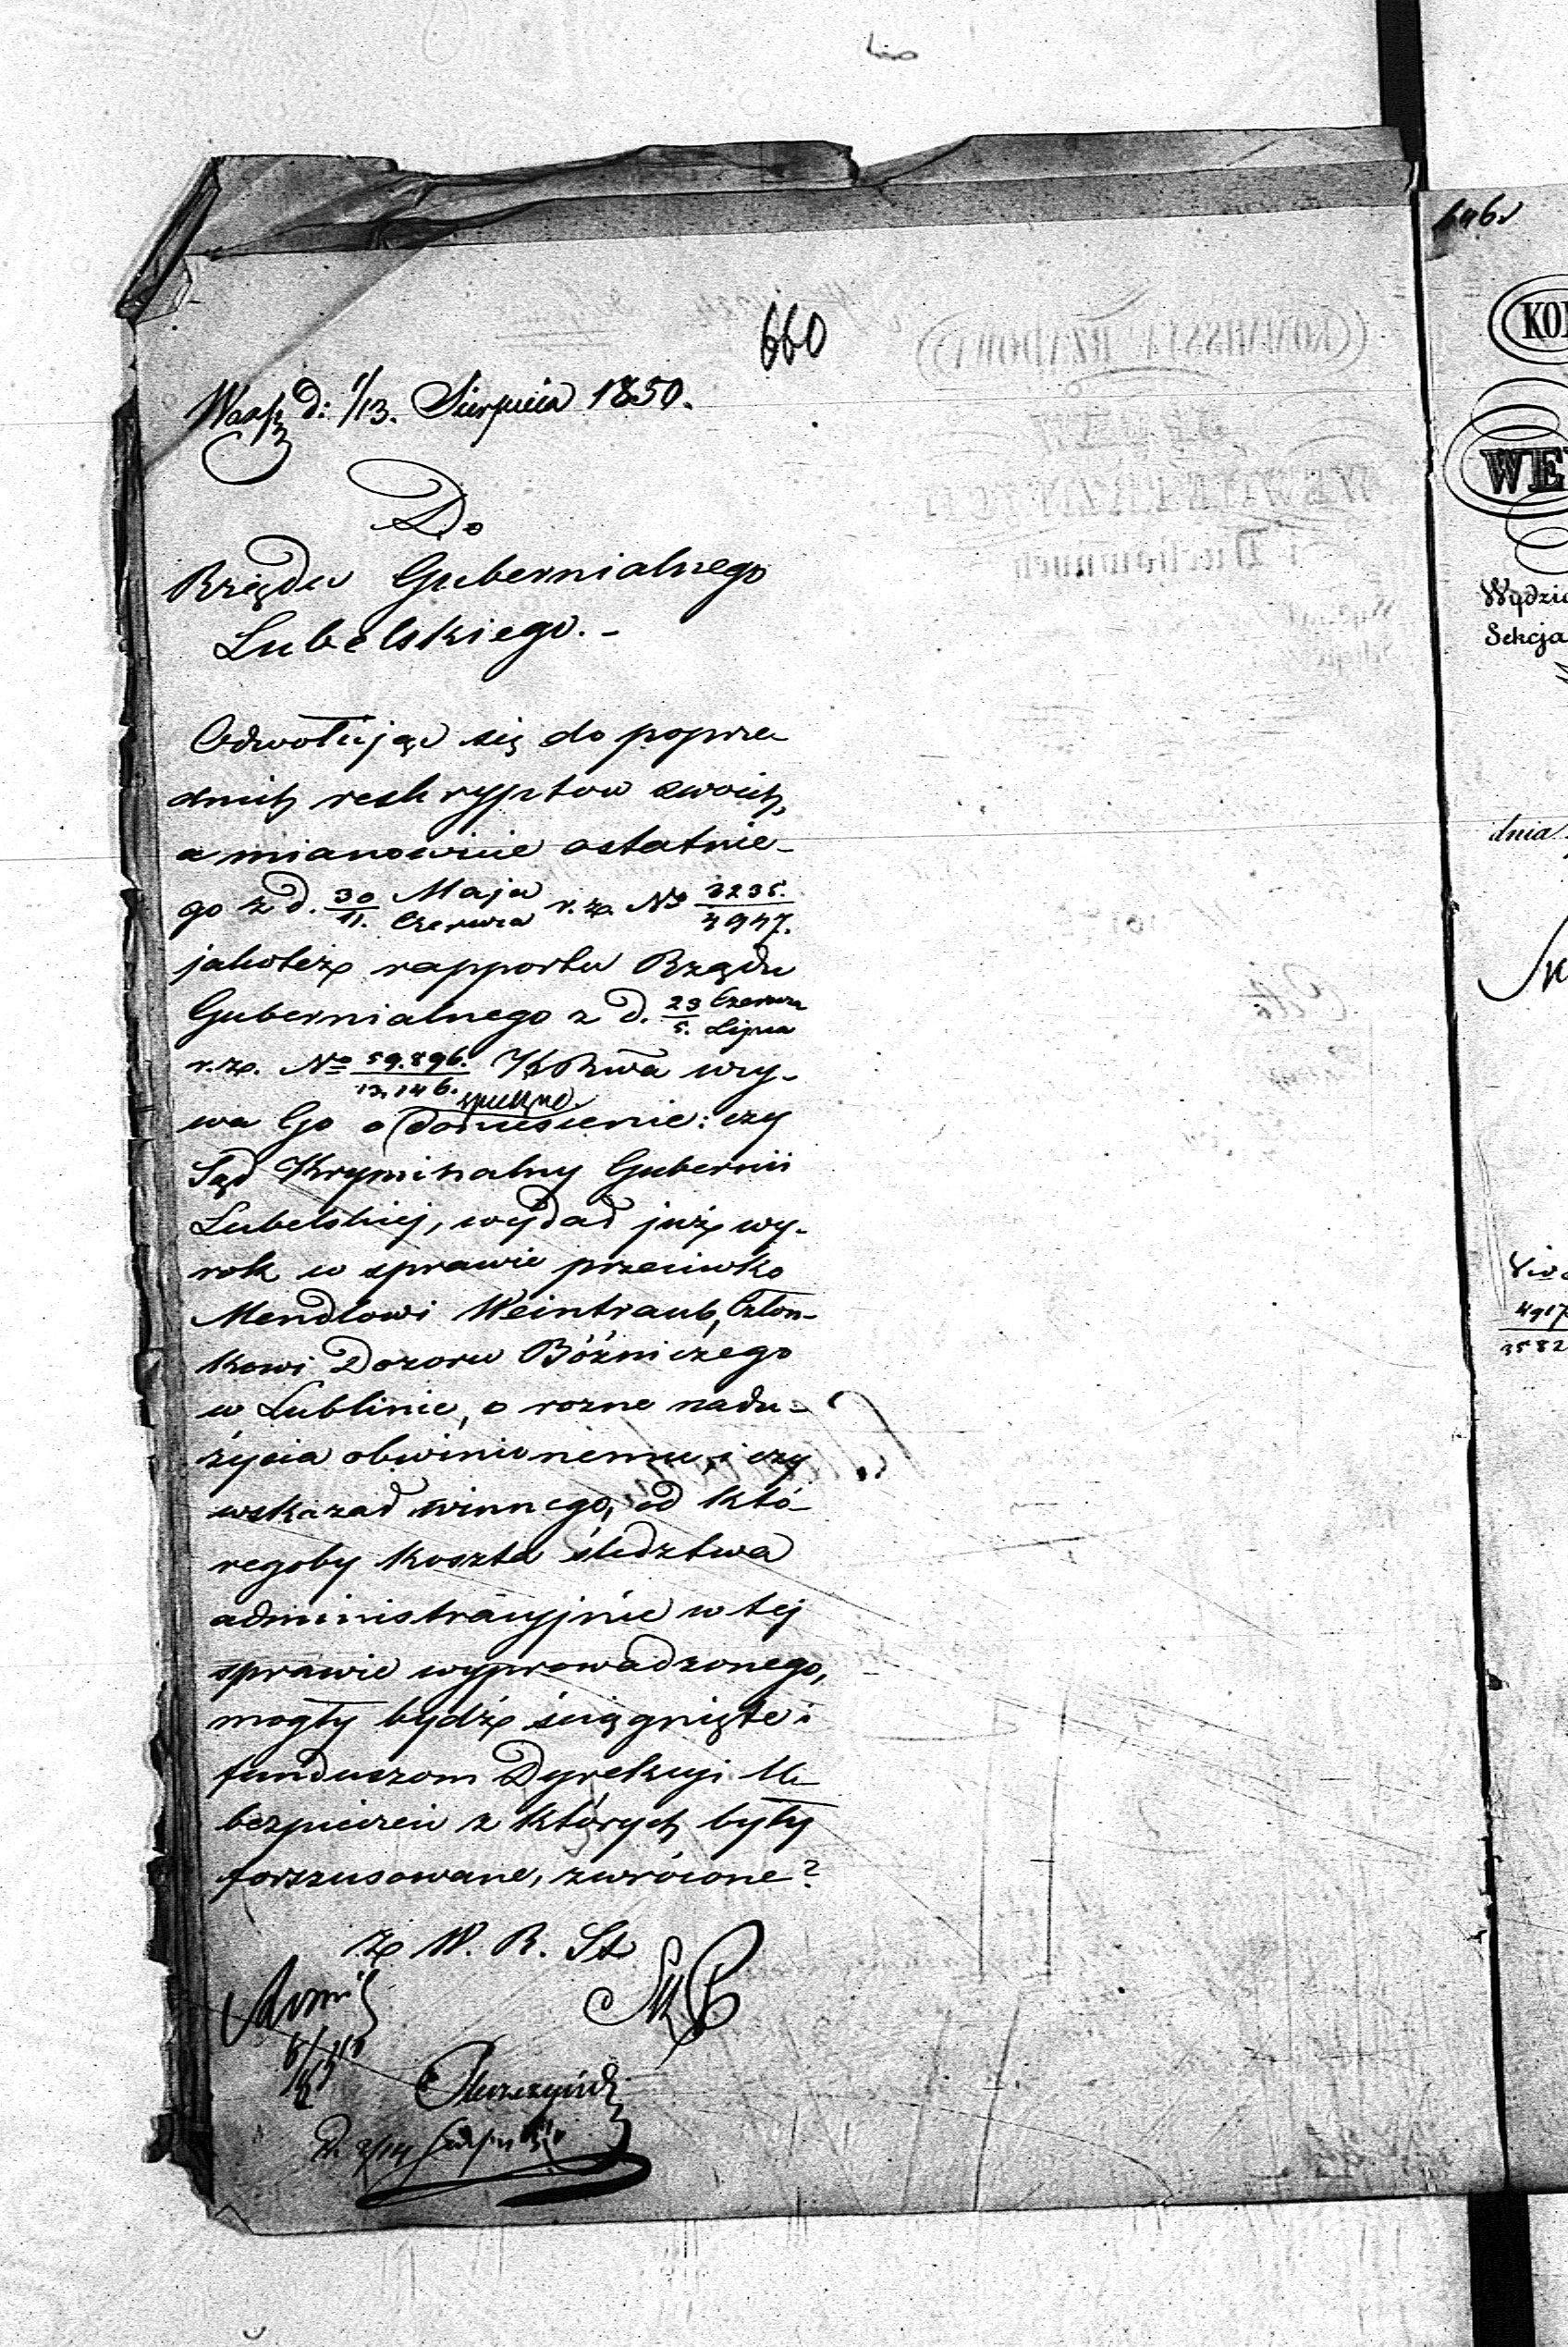 660
Warsz d: 1/13. Sierpnia 1850.
Do
Rządu Gubernialnego
Lubelskiego. -
Odwołując się do poprze-
dnich reskryptow swoich,
a mianowicie ostatnie-
go z d. 30/11. Maja/Czerwca r. z. No 3235./4947.
jakoteż rapportu Rządu
Gubernialnego z d. 23/5. Czerwca/Lipca
r. z. No 59.896./13,146. K Rwa wzy-
wa Go o spieszne doniesienie: czy
Sąd Kryminalny Gubernii
Lubelskiej, wydał już wy-
rok w sprawie przeciwko
Mendlowi Weintraub, Człon-
kowi Dozoru Bóżniczego
w Lublinie, o rozne nadu-
życia obwinionemu, i czy
wskazał winnego, od któ-
regoby koszta śledztwa
administracyjnie w tej
sprawie wyprowadzonego,
mogły bydź ściągnięte i
funduszom Dyrekcyi U-
bezpieczeń z których były
forszusowane, zwrócone?
z W. R. St
D. 2/14
KO
WE
Wydzia
Sekcja
dnia